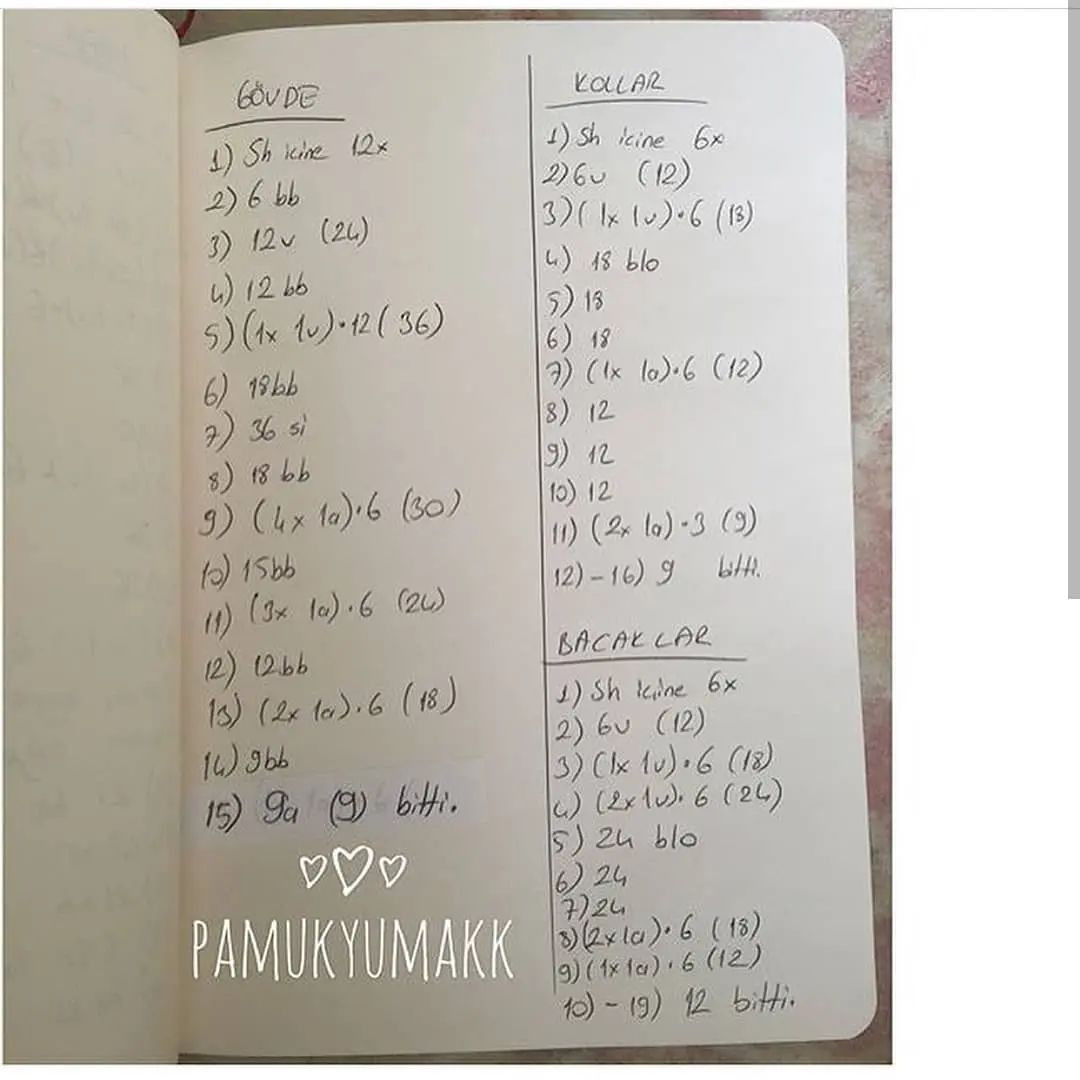 GÖVDE
1) Sh icine 12x
2) 6 bb
3) 12v (24)
4) 12 bb
5) (1x 1v)•12 (36)
6) 18bb
7) 36 si
8) 18 bb
9) (4x 1a)•6 (30)
10) 15bb
11) (3x 1a)•6 (24)
12) 12bb
13) (2x 1a)•6 (18)
14) 9bb
15) 9a (9) bitti.
PAMUKYUMAKK
KOLLAR
1) Sh icine 6x
2) 6v (12)
3) (1x 1v)•6 (18)
4) 18 blo
5) 18
6) 18
7) (1x 1a)•6 (12)
8) 12
9) 12
10) 12
11) (2x 1a)•3 (9)
12) - 16) 9 bitti.
BACAKLAR
1) Sh icine 6x
2) 6v (12)
3) (1x 1v)•6 (18)
4) (2x 1v)•6 (24)
5) 24 blo
6) 24
7) 24
8) (2x 1a)•6 (18)
9) (1x 1a)•6 (12)
10) - 19) 12 bitti.